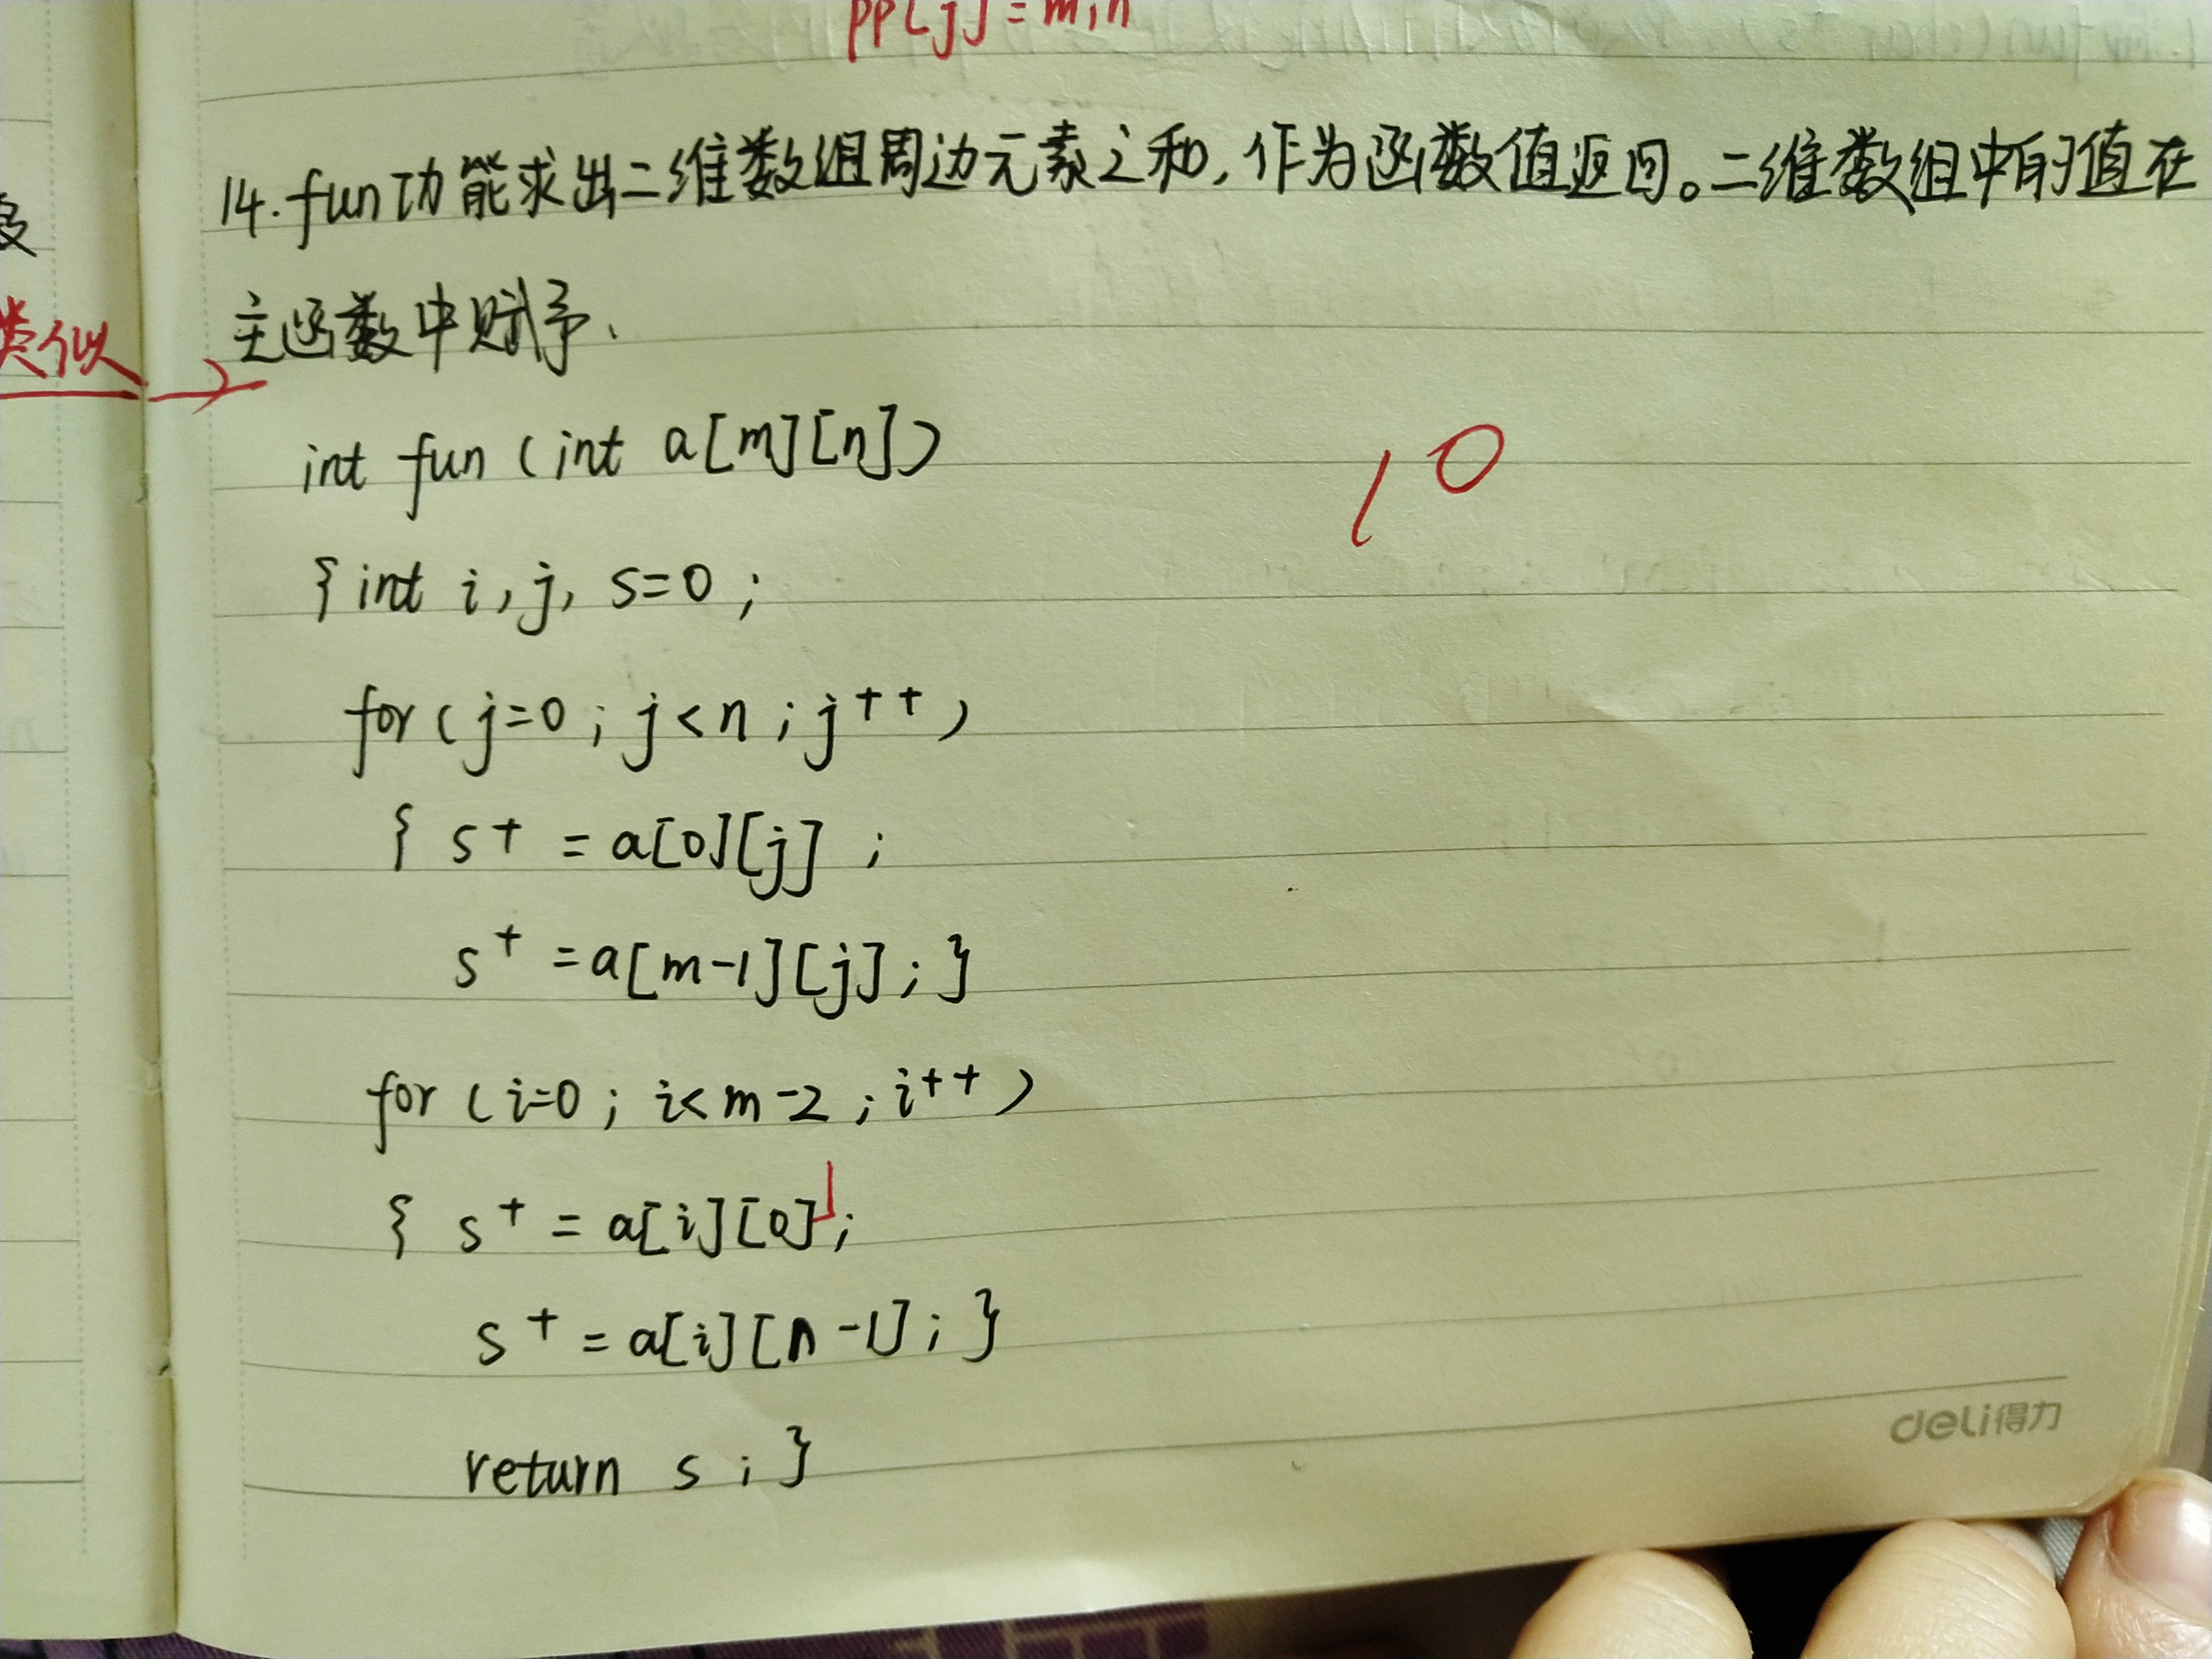 pp[j]=min
14.fun功能求出二维数组周边元素之和,作为函数值返回。二维数组中的值在
主函数中赋予.
类似
int fun (int a[m][n])
10
{int i, j, s=0;
for(j=0; j<n; j++)
{ s+ = a[0][j] ;
s+ =a[m-1][j];}
for (i=0; i<m-2; i++)
{ s+ = a[i][0];
s+ = a[i][n-1];}
return s;}
deli得力